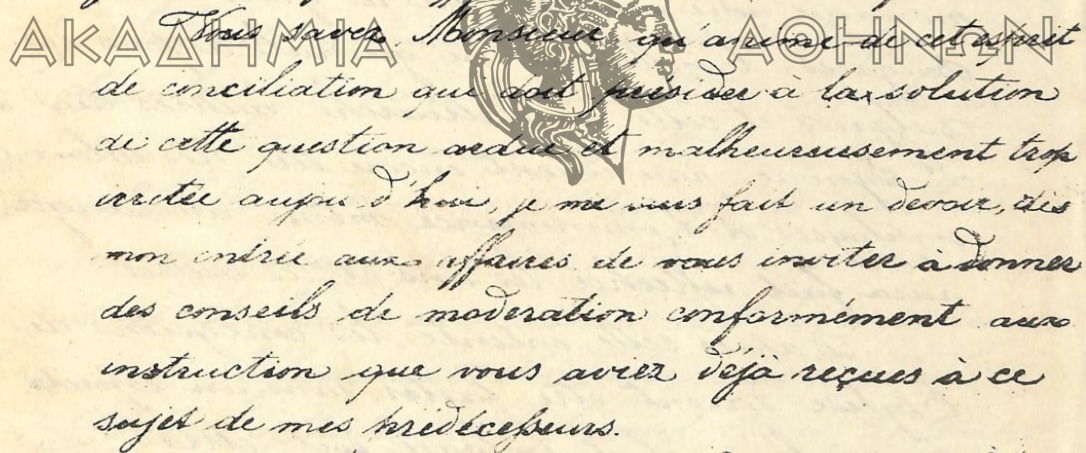 ΑΚΑΔΗΜΙΑ ΑΘΗΝΩΝ
Vous savez, Monsieur qu'animé de cet esprit
de conciliation qui doit présider à la solution
de cette question ardue et malheureusement trop
irritée aujou d'hui, je me suis fait un devoir, dès
mon entrée aux affaires de vous inviter à donner
des conseils de modération conformément aux
instruction que vous aviez déjà reçues à ce
sujet de mes prédécesseurs.